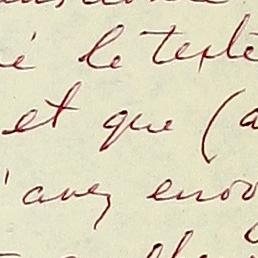 é le texte
et que (a
'avez envo